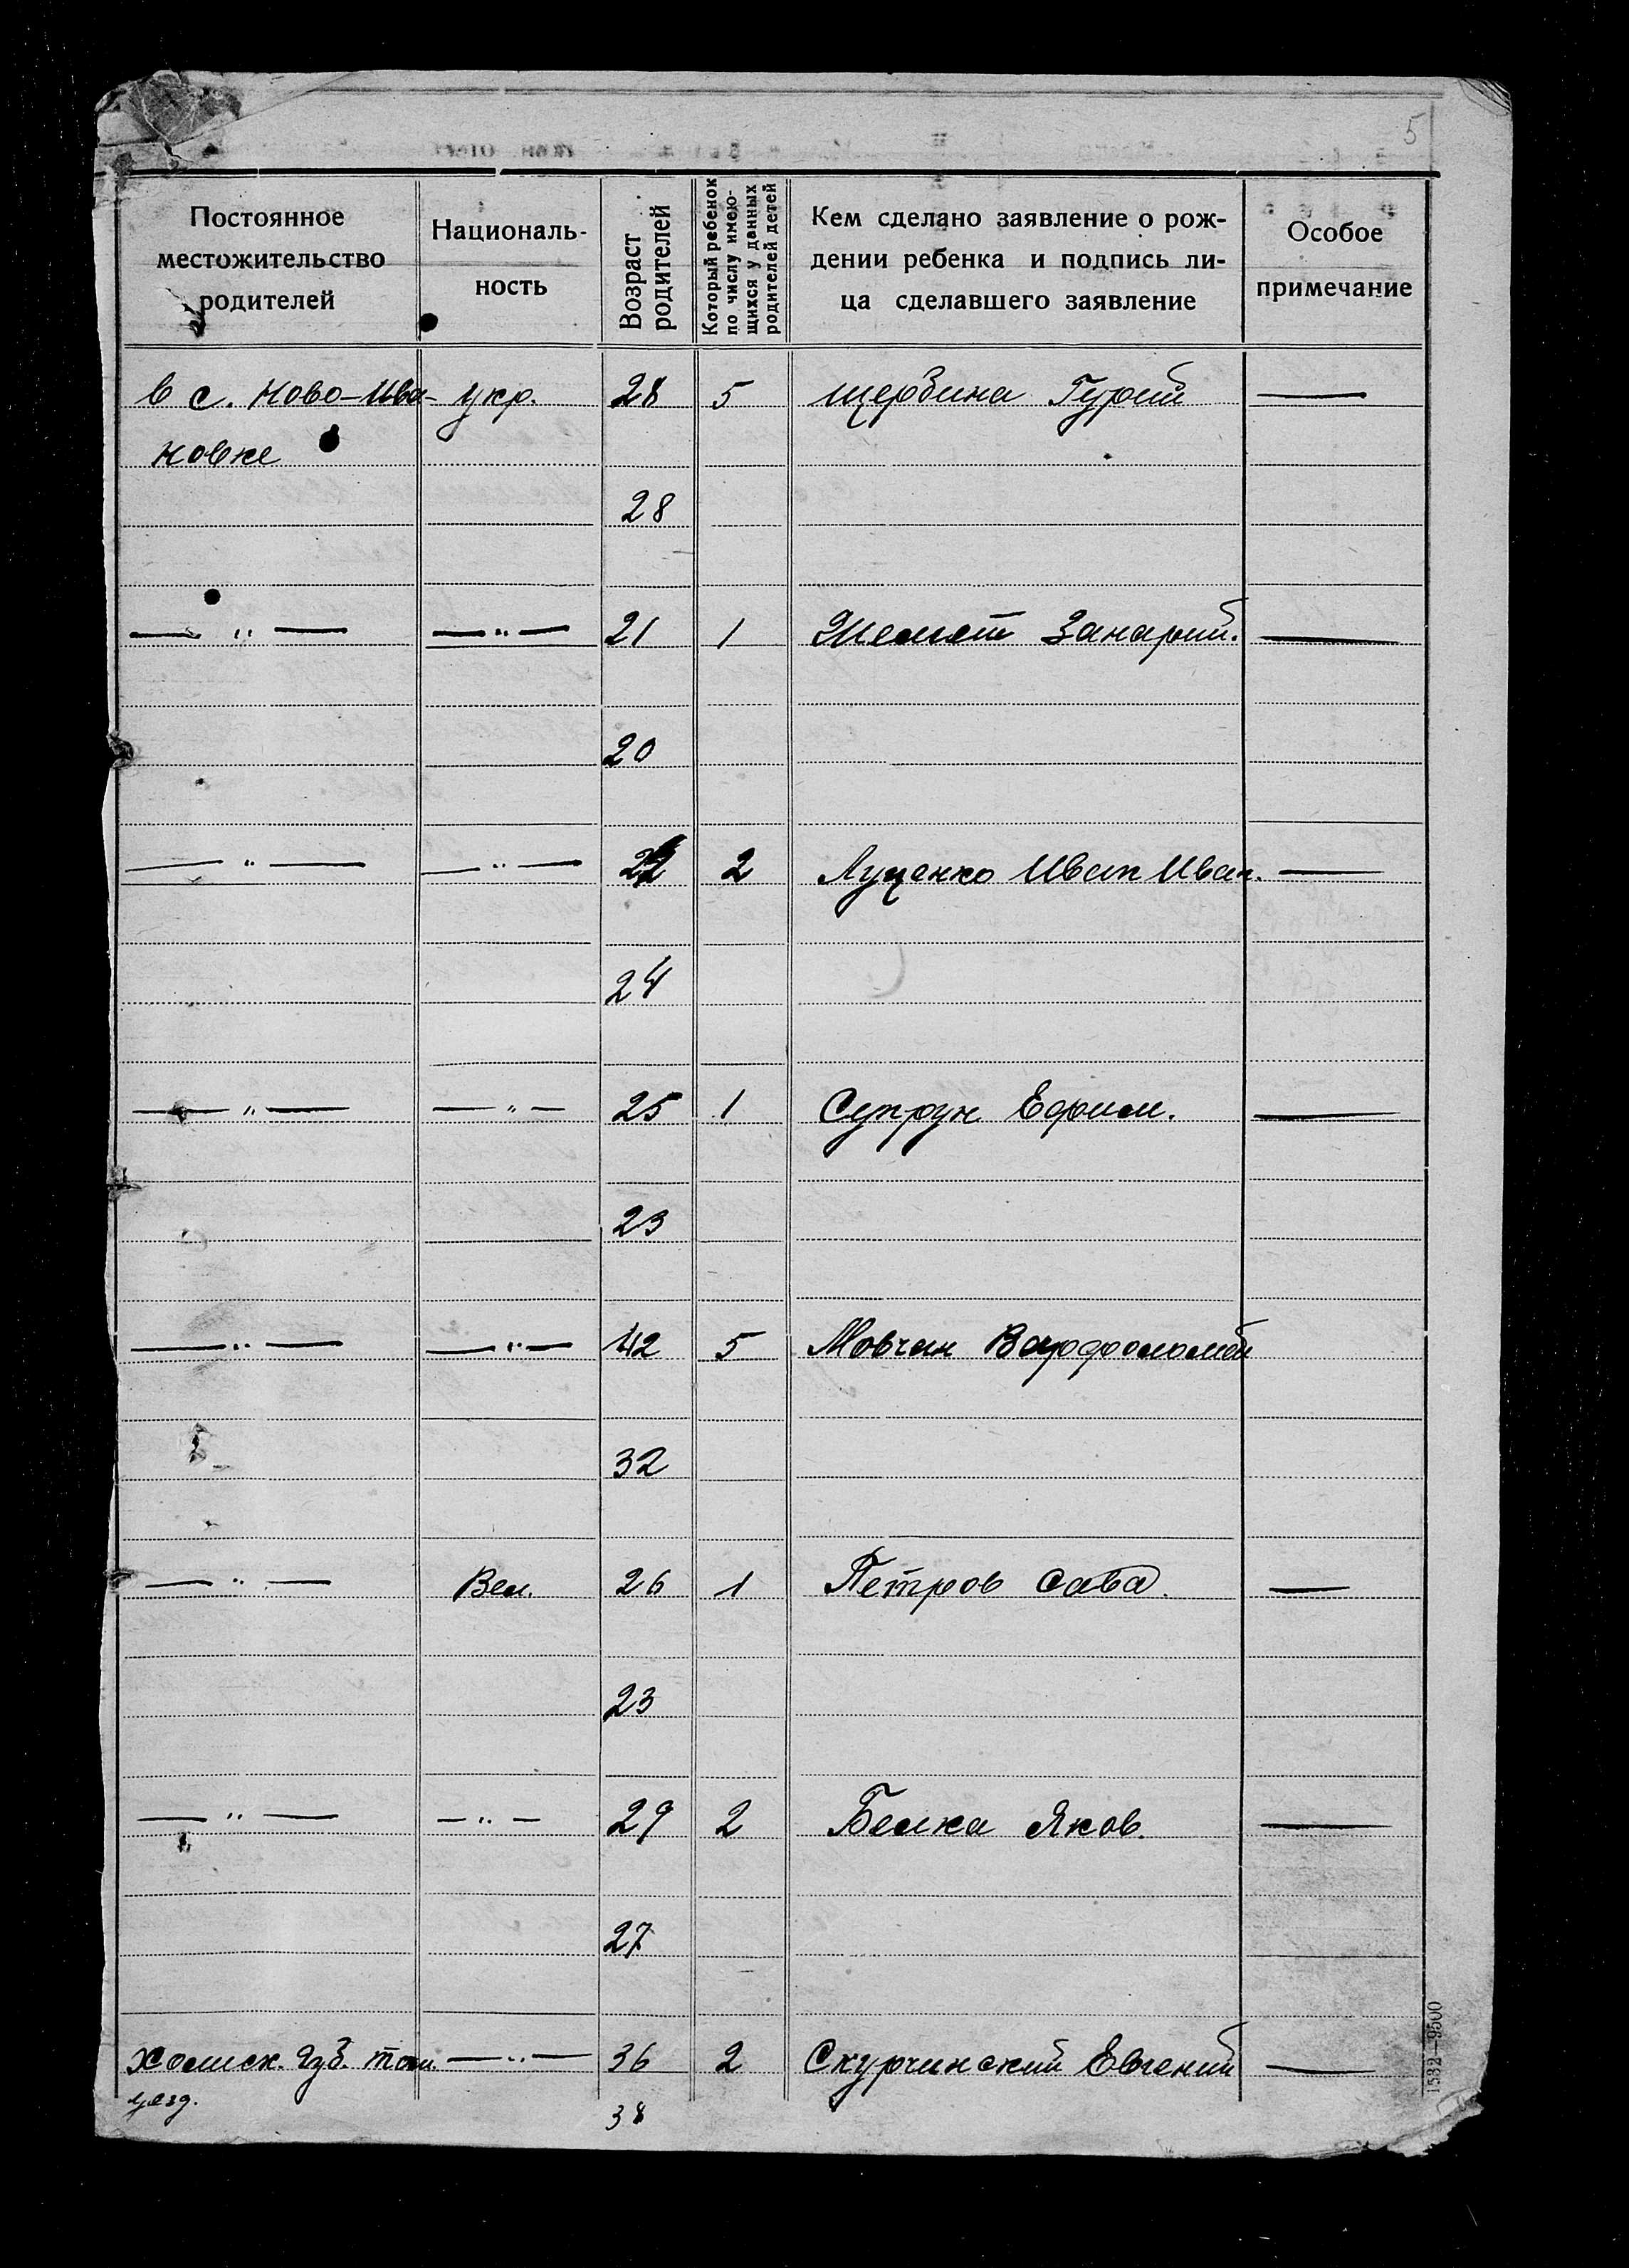 5
Постоянное
местожительство
родителей
Националь-
ность
Возраст
родителей
Который ребенок
по числу имею-
щихся у данных
родителей детей
Кем сделано заявление о рож-
дении ребенка и подпись ли-
ца сделавшего заявление
Особое
примечание
в с. Ново-Ива- укр. 28 5 щербина Гурий —
новке
28
— " — — " — 21 1 —
20
— " — — " — 2 Луценко Иван Иван. —
24
— " — — " — 25 1 Супрун Ефим. —
23
— " — — " — 42 5 Мовчан Варфоломей
32
— " — Вел. 26 1 Петров Сава. —
23
— " — — " — 29 2 Белка Яков. —
27
Холмск. губ. Том. — " — 36 2 Скурчинский Евгений —
уезд.
38
1532—9500